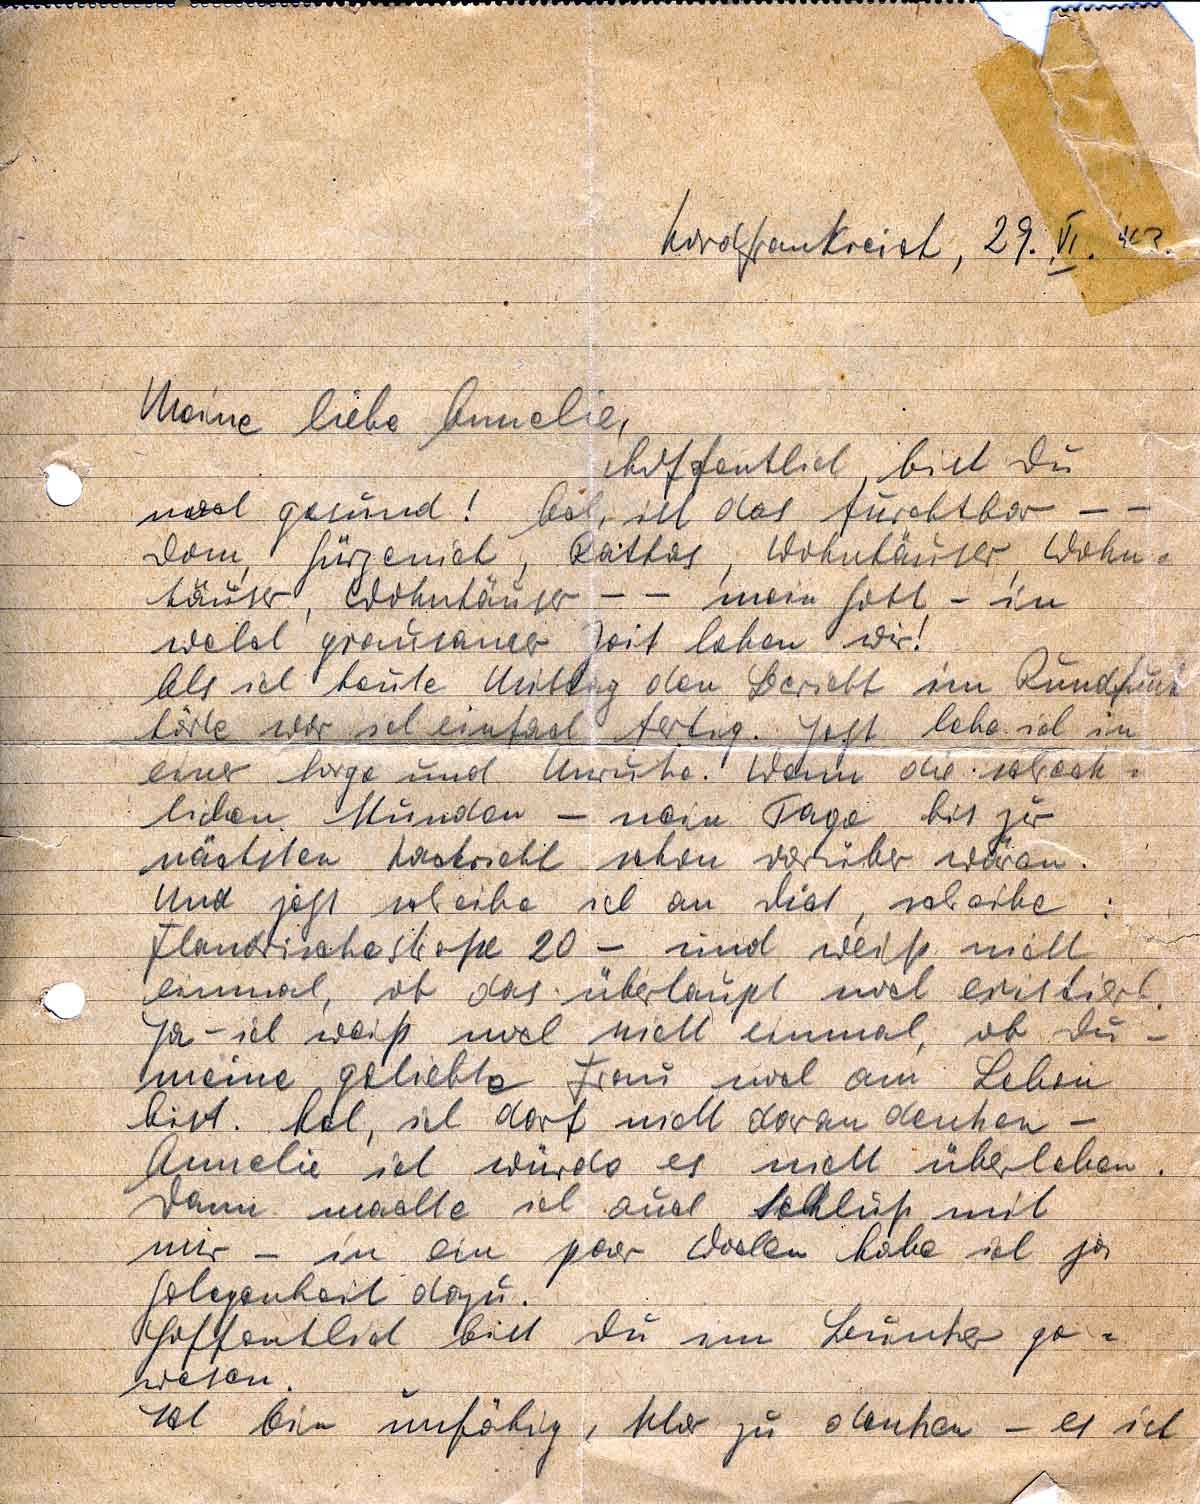 Nordfrankreich, 29. VI. 43.
Meine liebe Annelie,
hoffentlich bist Du
noch gesund! Ach, ist das furchtbar — —
Dom, Gürzenich, Rathaus, Wohnhäuser, Wohn-
häuser, Wohnhäuser — — mein Gott – in
welch grausamer Zeit leben wir!
Als ich heute Mittag den Bericht im Rundfunk
hörte war ich einfach fertig. Jetzt lebe ich in
einer Sorge und Unruhe. Wenn die schreck-
lichen Stunden – nein Tage bis zur
nächsten Nachricht schon vorüber wären.
Und jetzt schreibe ich an Dich, schreibe :
Flandrischestraße 20 – und weiß nicht
einmal, ob das überhaupt noch existiert.
Ja – ich weiß noch nicht einmal, ob Du –
meine geliebte Frau noch am Leben
bist. Ach, ich darf nicht daran denken –
Annelie ich würde es nicht überleben.
Dann machte ich auch Schluß mit
mir – in ein paar Wochen habe ich ja
Gelegenheit dazu.
Hoffentlich bist Du im Bunker ge-
wesen.
Ich bin unfähig, klar zu denken – es ist